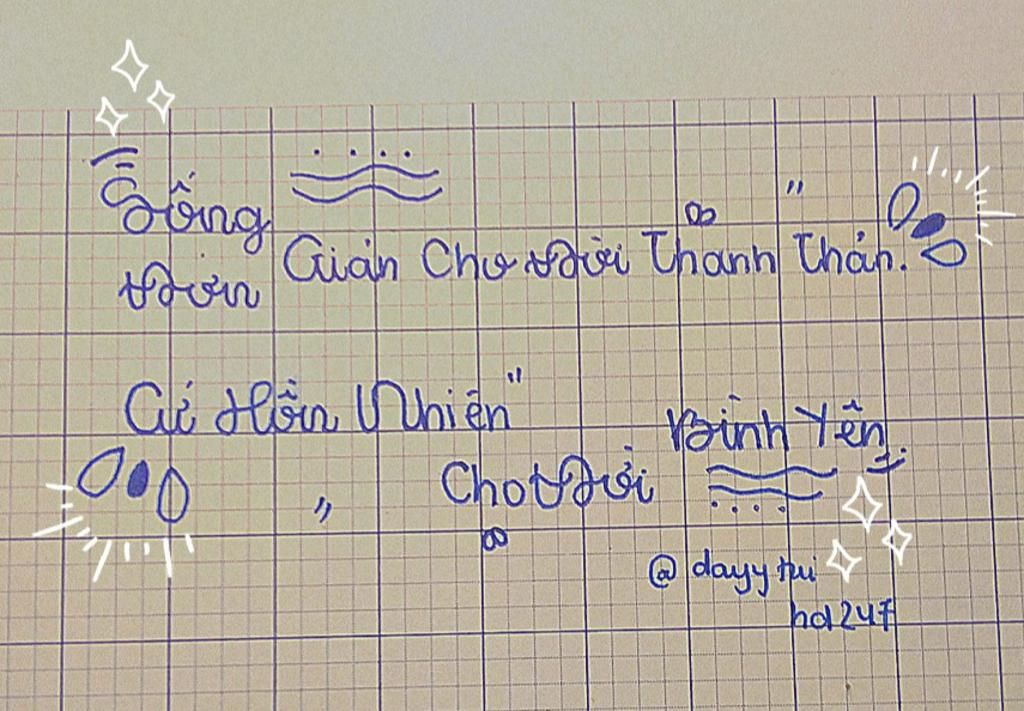 Sống
Đơn Giản Cho Đời Thanh Thản.
Cứ Hồn Nhiên
Cho Đời Bình Yên.
@dayy tui
hd247